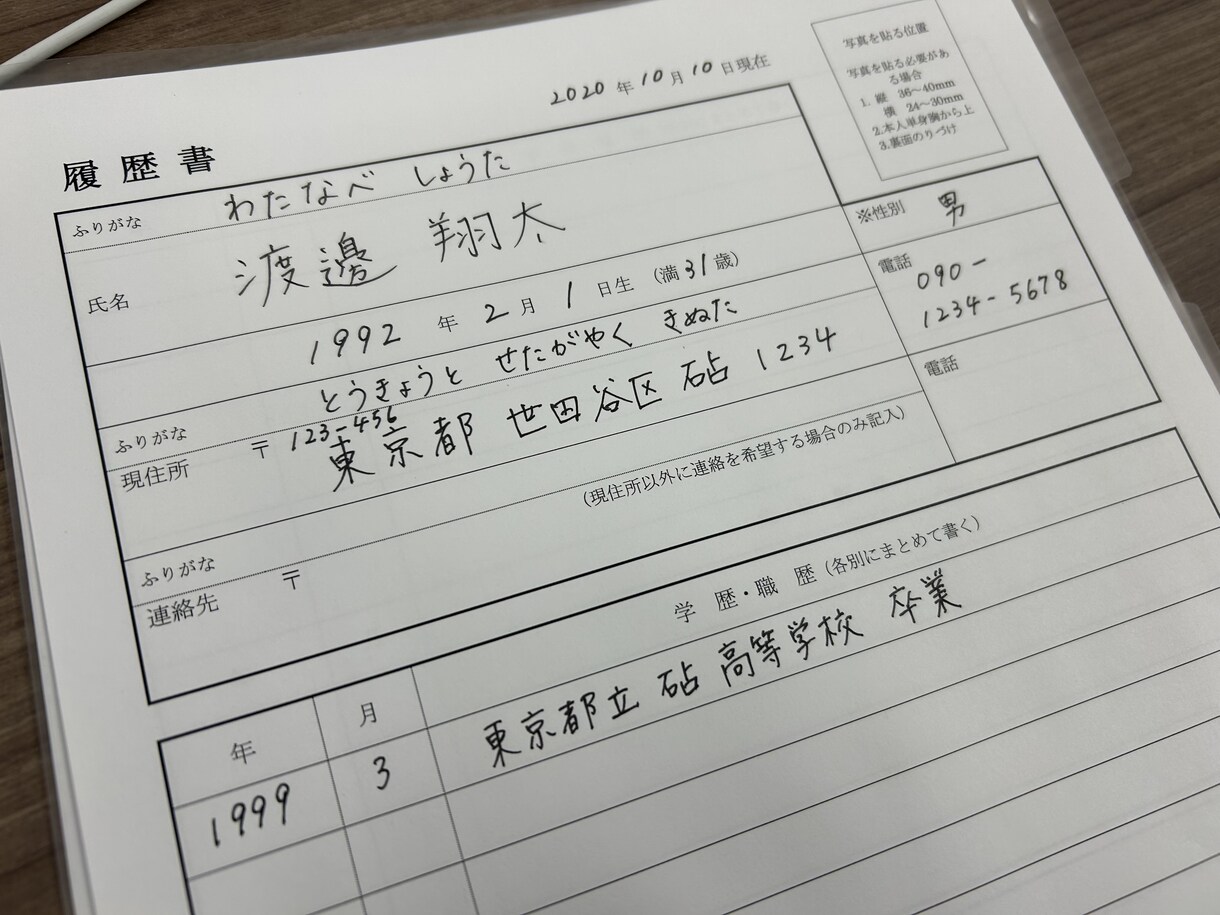 2020年10月10日現在
写真を貼る位置
写真を貼る必要があ
る場合
1. 縦 36〜40mm
横 24〜30mm
2.本人単身胸から上
3.裏面のりづけ
履歴書
ふりがな わたなべ しょうた
氏名 渡邊 翔太
※性別 男
1992年2月1日生 (満31歳)
電話 090-
1234-5678
ふりがな とうきょうと せたがやく きぬた
現住所 〒123-456
東京都 世田谷区 砧 1234
電話
ふりがな
(現住所以外に連絡を希望する場合のみ記入)
連絡先 〒
年 月 学 歴・職 歴(各別にまとめて書く)
1999 3 東京都立 砧 高等学校 卒業